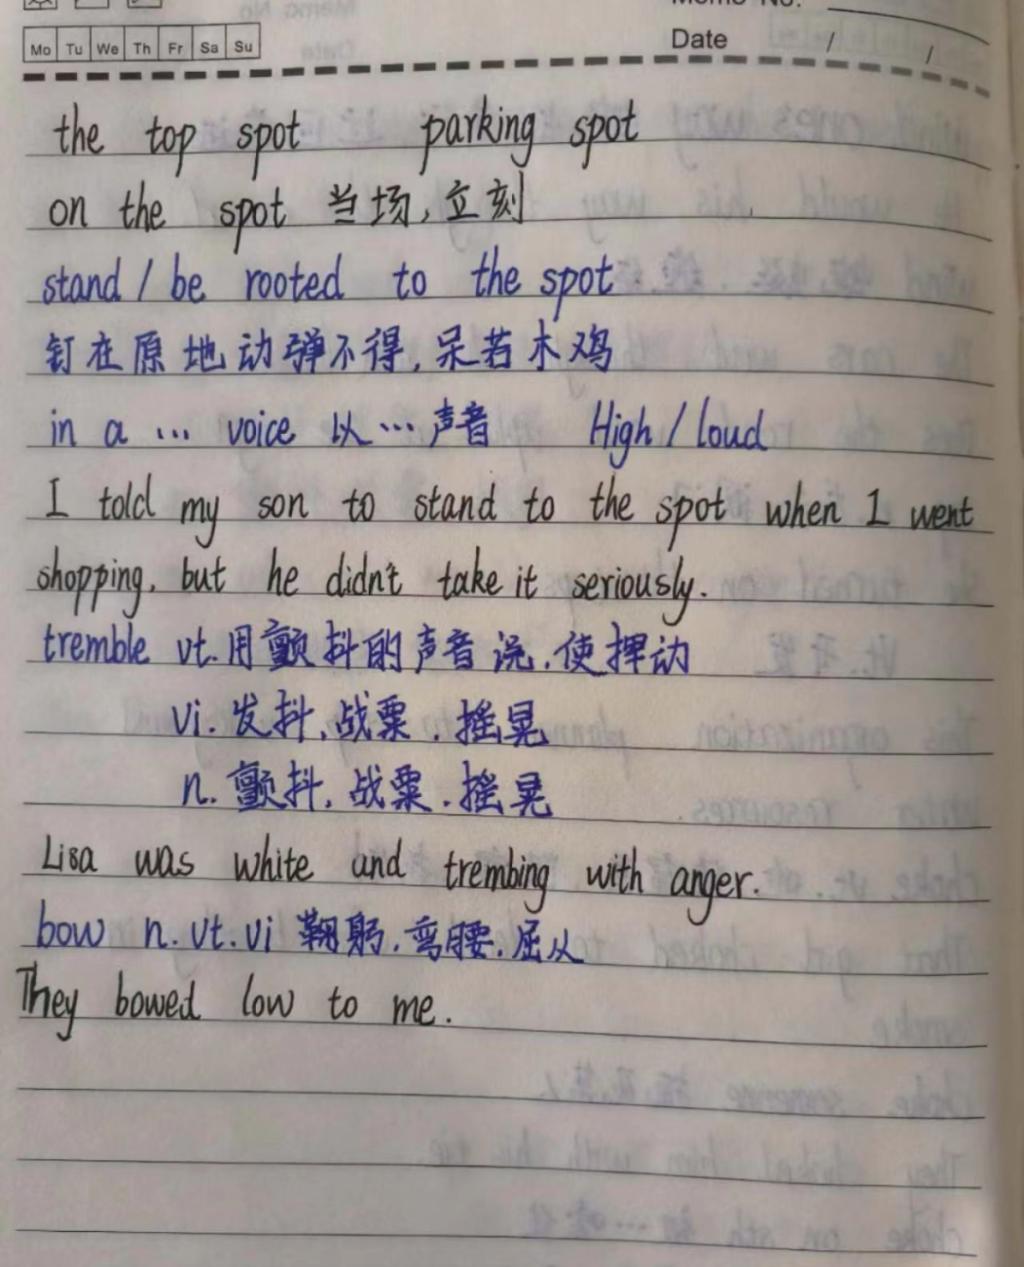 Memo No.
Mo Tu We Th Fr Sa Su
Date / /
the top spot parking spot
on the spot 当场,立刻
stand / be rooted to the spot
钉在原地动弹不得,呆若木鸡
in a … voice 以…声音 High / loud
I told my son to stand to the spot when I went
shopping, but he didn't take it seriously.
tremble vt.用颤抖的声音说.使挥动
vi.发抖,战栗.摇晃
n.颤抖,战栗.摇晃
Lisa was white and trembing with anger.
bow n.vt.vi 鞠躬.弯腰.屈从
They bowed low to me.